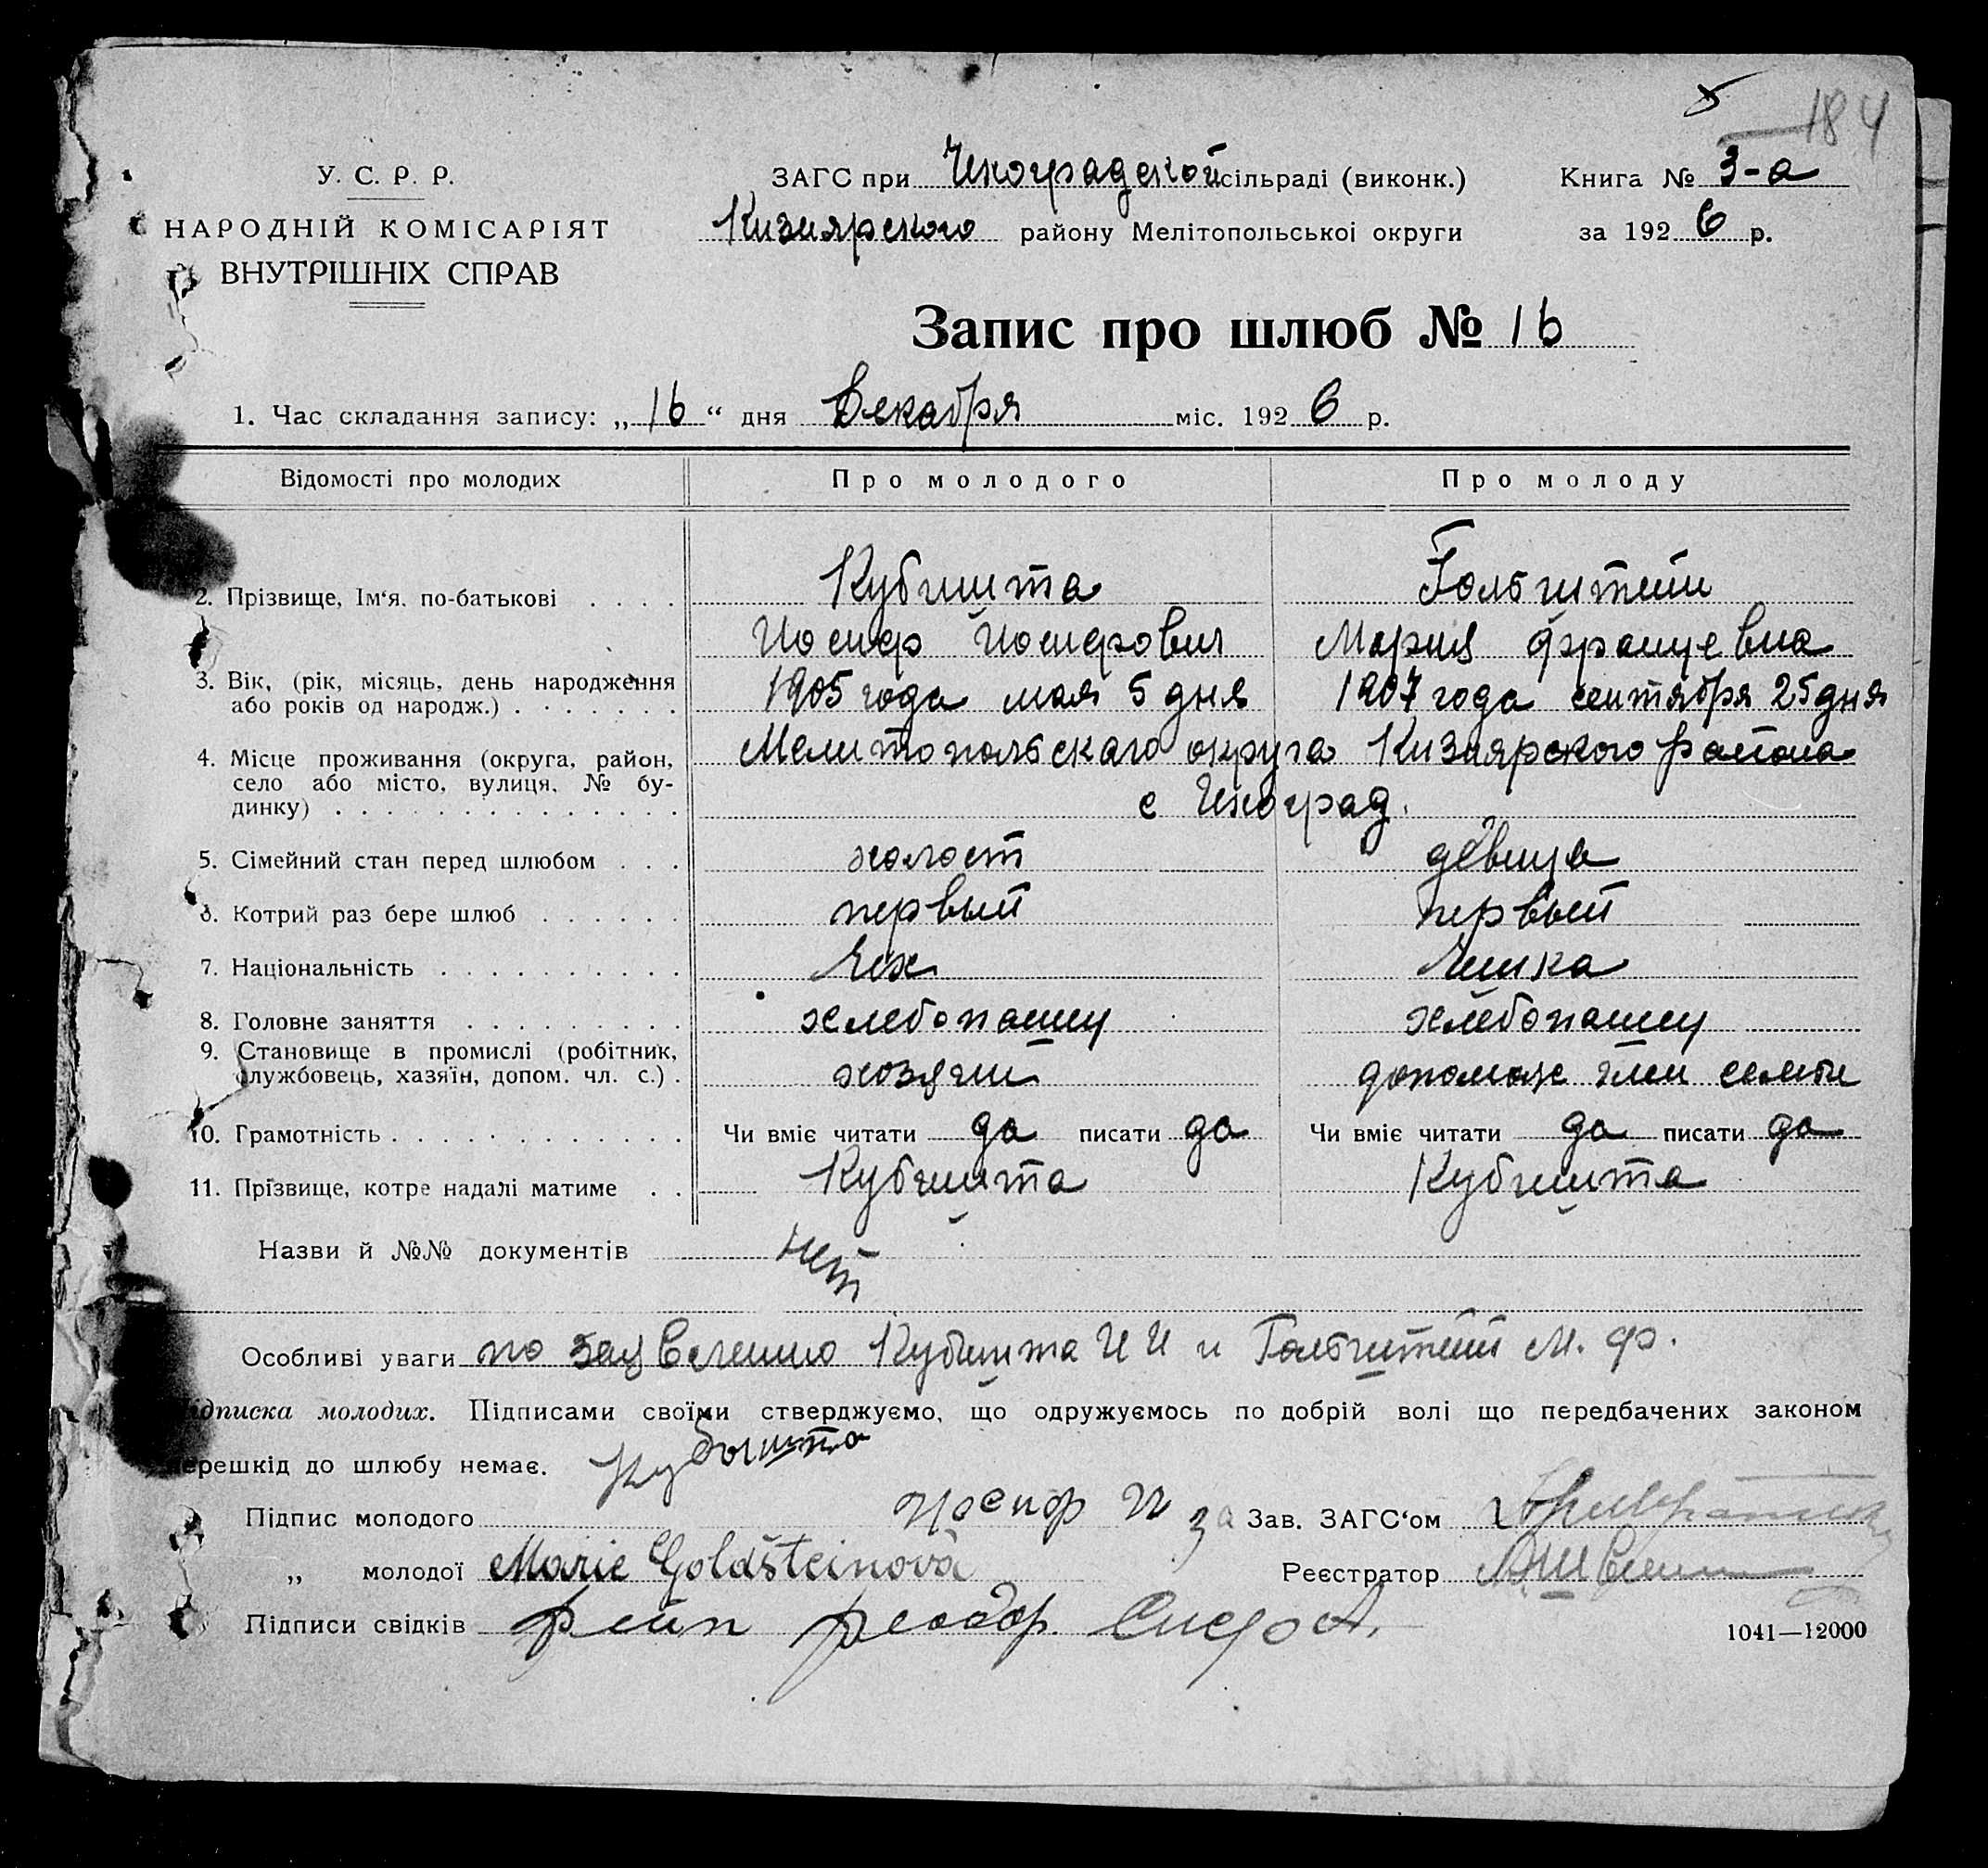 184
У. С. Р. Р.
НАРОДНІЙ КОМІСАРІЯТ
ВНУТРІШНІХ СПРАВ
ЗАГС при Чехоградской сільраді (виконк.)
Книга № 3-а
Кизиярского району Мелітопольської округи
за 1926 р.
Запис про шлюб № 16
1. Час складання запису: „16“ дня Декабря міс. 1926 р.
Відомості про молодих Про молодого Про молоду
2. Прізвище, Ім‘я, по-батькові . . . . Кубышта Гольдштейн
Иосиф Иосифович Мария Францевна
3. Вік, (рік, місяць, день народження або років од народж.) . . . . . . . 1905 года мая 5 дня 1907 года сентября 25 дня
4. Місце проживання (округа, район, село або місто, вулиця, № будинку) . . . . . . . . . . . . . . Мелитопольскаго округа Кизиярского района
с Чехоград.
5. Сімейний стан перед шлюбом . . . холост девица
6. Котрий раз бере шлюб . . . . . . первый первый
7. Національність . . . . . . . . . . Чех Чешка
8. Головне заняття . . . . . . . . . хлебопашец хлебопашец
9. Становище в промислі (робітник, службовець, хазяїн, допом. чл. с.) . хозяин допомож член семьи
10. Грамотність . . . . . . . . . . . . Чи вміє читати да писати да Чи вміє читати да писати да
11. Прізвище, котре надалі матиме . . Кубышта Кубышта
Назви й №№ документів нет
Особливі уваги по заявлению Кубышта И И и Гольдштейн М. Ф.
Підписка молодих. Підписами своїми стверджуємо, що одружуємось по добрій волі що передбачених законом
перешкід до шлюбу немає. Кубышта
Підпис молодого Иосиф И за Зав. ЗАГС‘ом
„ молодої Marie Goldšteinová Реєстратор
Підписи свідків
1041—12000